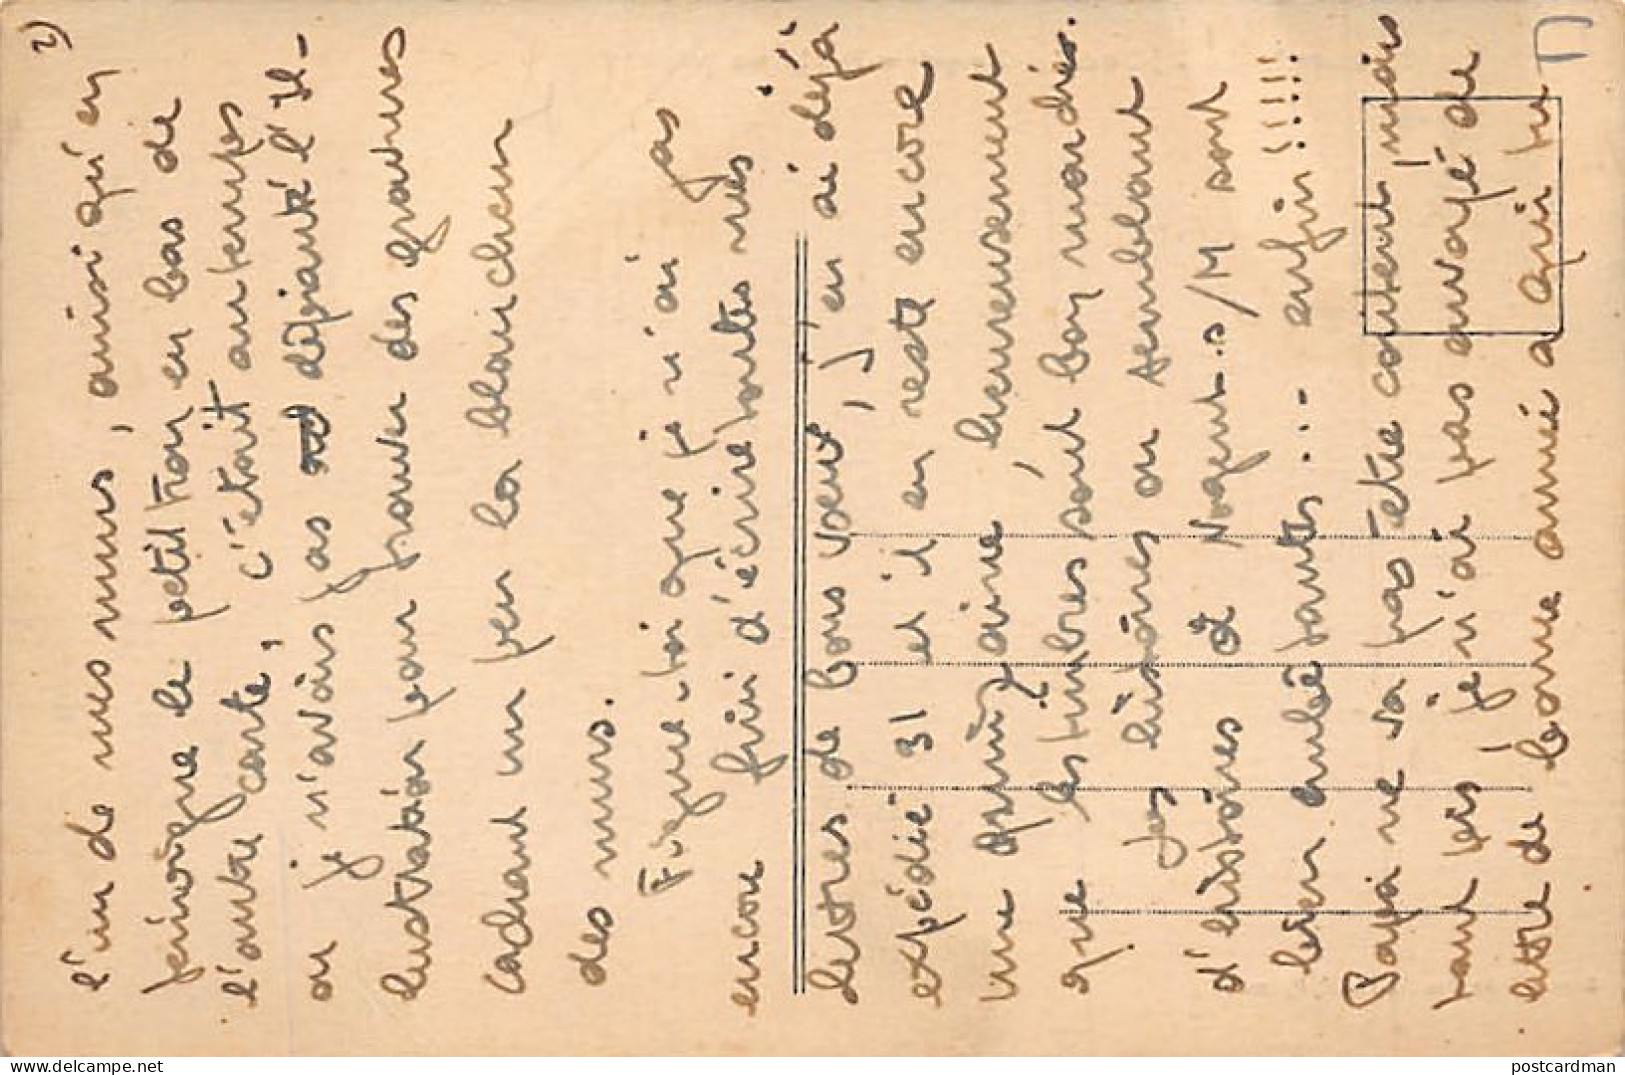 2)
l'un de mes murs, ainsi qu'en
témoigne le petit trou en bas de
l'autre carte, c'était au temps
où je n'avais pas déjanté l'il-
lustration pour trouver des gravures
cachant un peu la blancheur
des murs.
Figure-toi que je n'ai pas
encore fini d'écrire toutes mes
lettres de bons vœux, j'en ai déjà
expédié 31 et il en reste encore
une quinzaine, heureusement
que les timbres sont bon marchés.
Les histoires ou semblant
d'histoires à Nogent-s/M sont
bien embêtantes... enfin!!!!!
Papa ne va pas être content, mais
tant pis, je n'ai pas envoyé de
lettre de bonne année à qui tu
postcardman